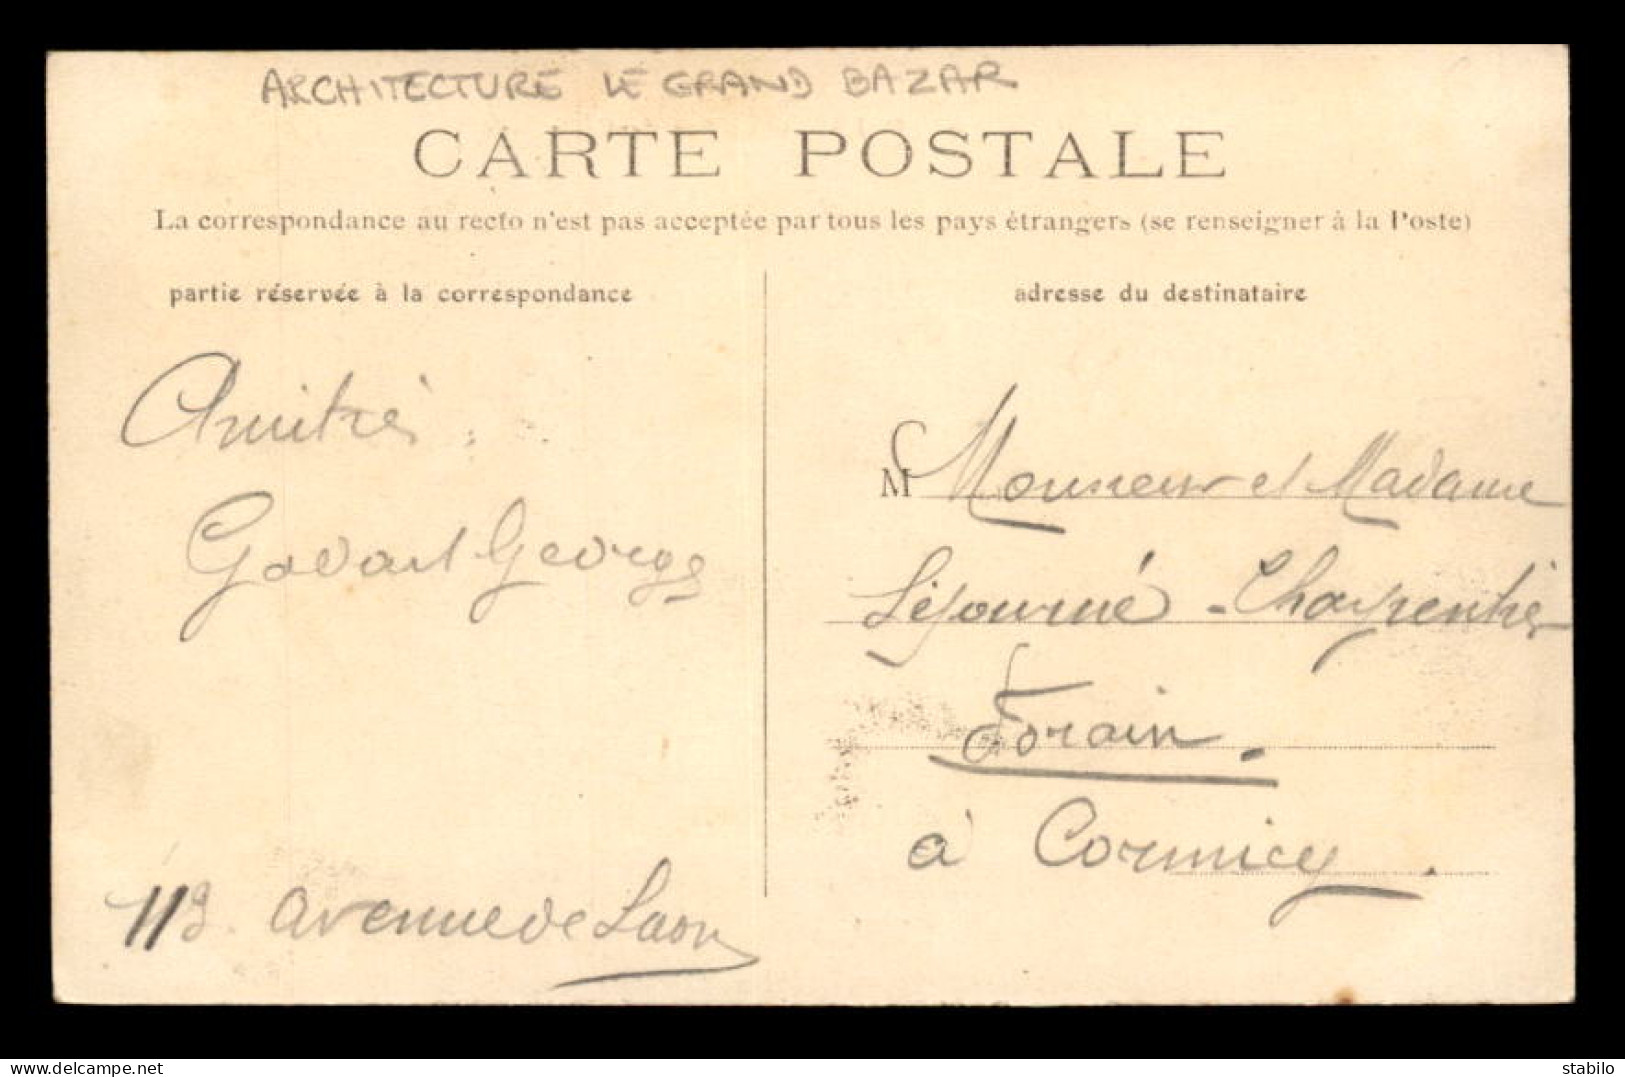 ARCHITECTURE LE GRAND BAZAR
CARTE POSTALE
La correspondance au recto n'est pas acceptée par tous les pays étrangers (se renseigner à la Poste)
partie réservée à la correspondance
adresse du destinataire
Amitiés
Godart Georges
119 avenue de Laon
M Monsieur et Madame
Séjourné - Charpentier
Forain.
à Cormicy.
www.delcampe.net
stabilo